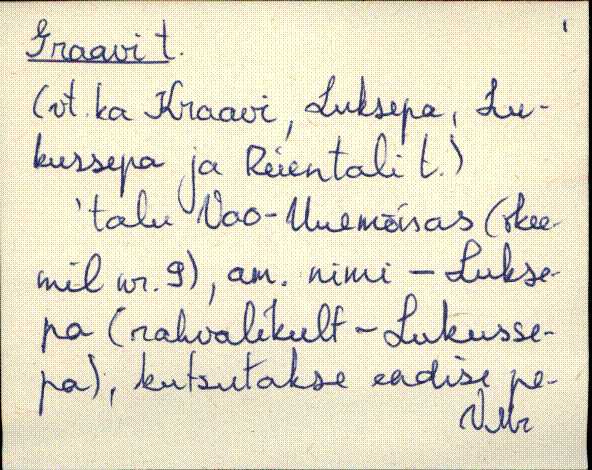 Graavi t.
(vt. ka Kraavi, Luksepa, Lu-
kussepa ja Reientali t.)
'talu Vao-Uuemõisas (skee-
mil nr. 9), am. nimi – Lukse-
pa (rahvalikult – Lukusse-
pa), kutsutakse endise pe-
VMr